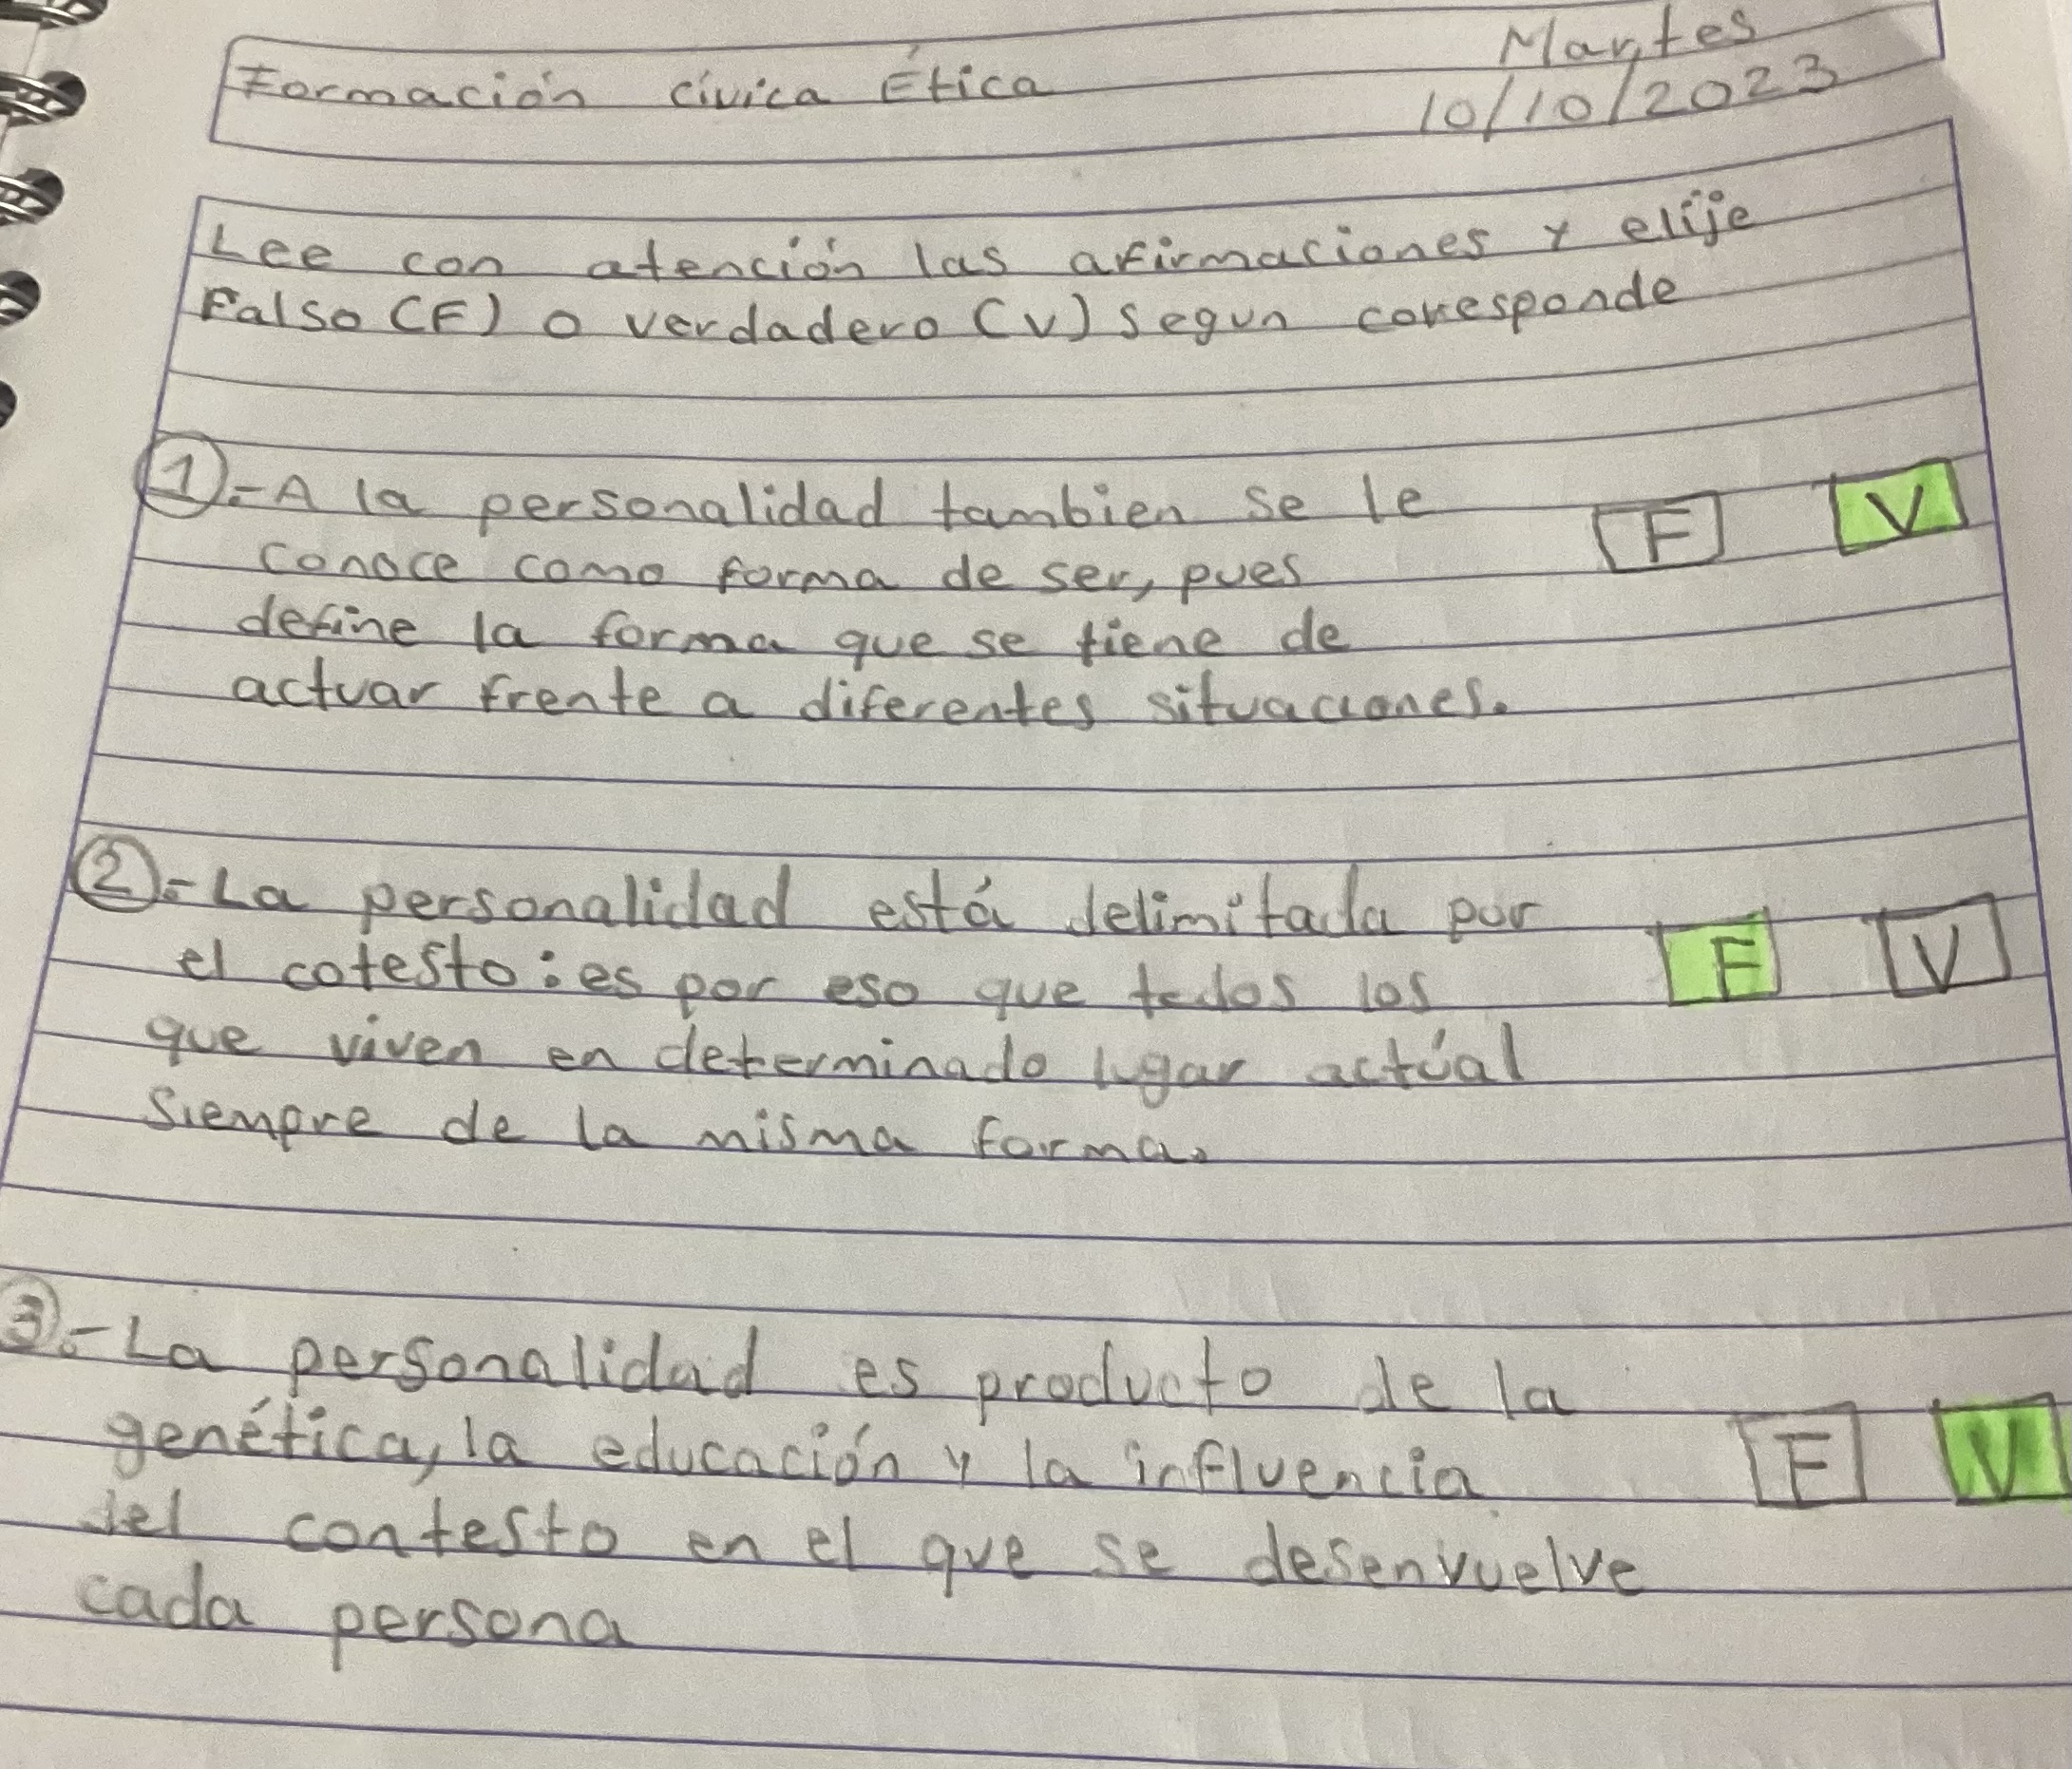 Formación cívica Ética
Martes
10/10/2023
Lee con atención las afirmaciones y elije
Falso (F) o verdadero (V) segun corresponde
1.- A la personalidad tambien se le
conoce como forma de ser, pues
define la forma que se tiene de
actuar frente a diferentes situaciones.
F V
2.- La personalidad está delimitada por
el cotesto: es por eso que todos los
que viven en determinado lugar actúal
siempre de la misma forma.
F V
3.- La personalidad es producto de la
genética, la educación y la influencia
del contesto en el que se desenvuelve
cada persona
F V